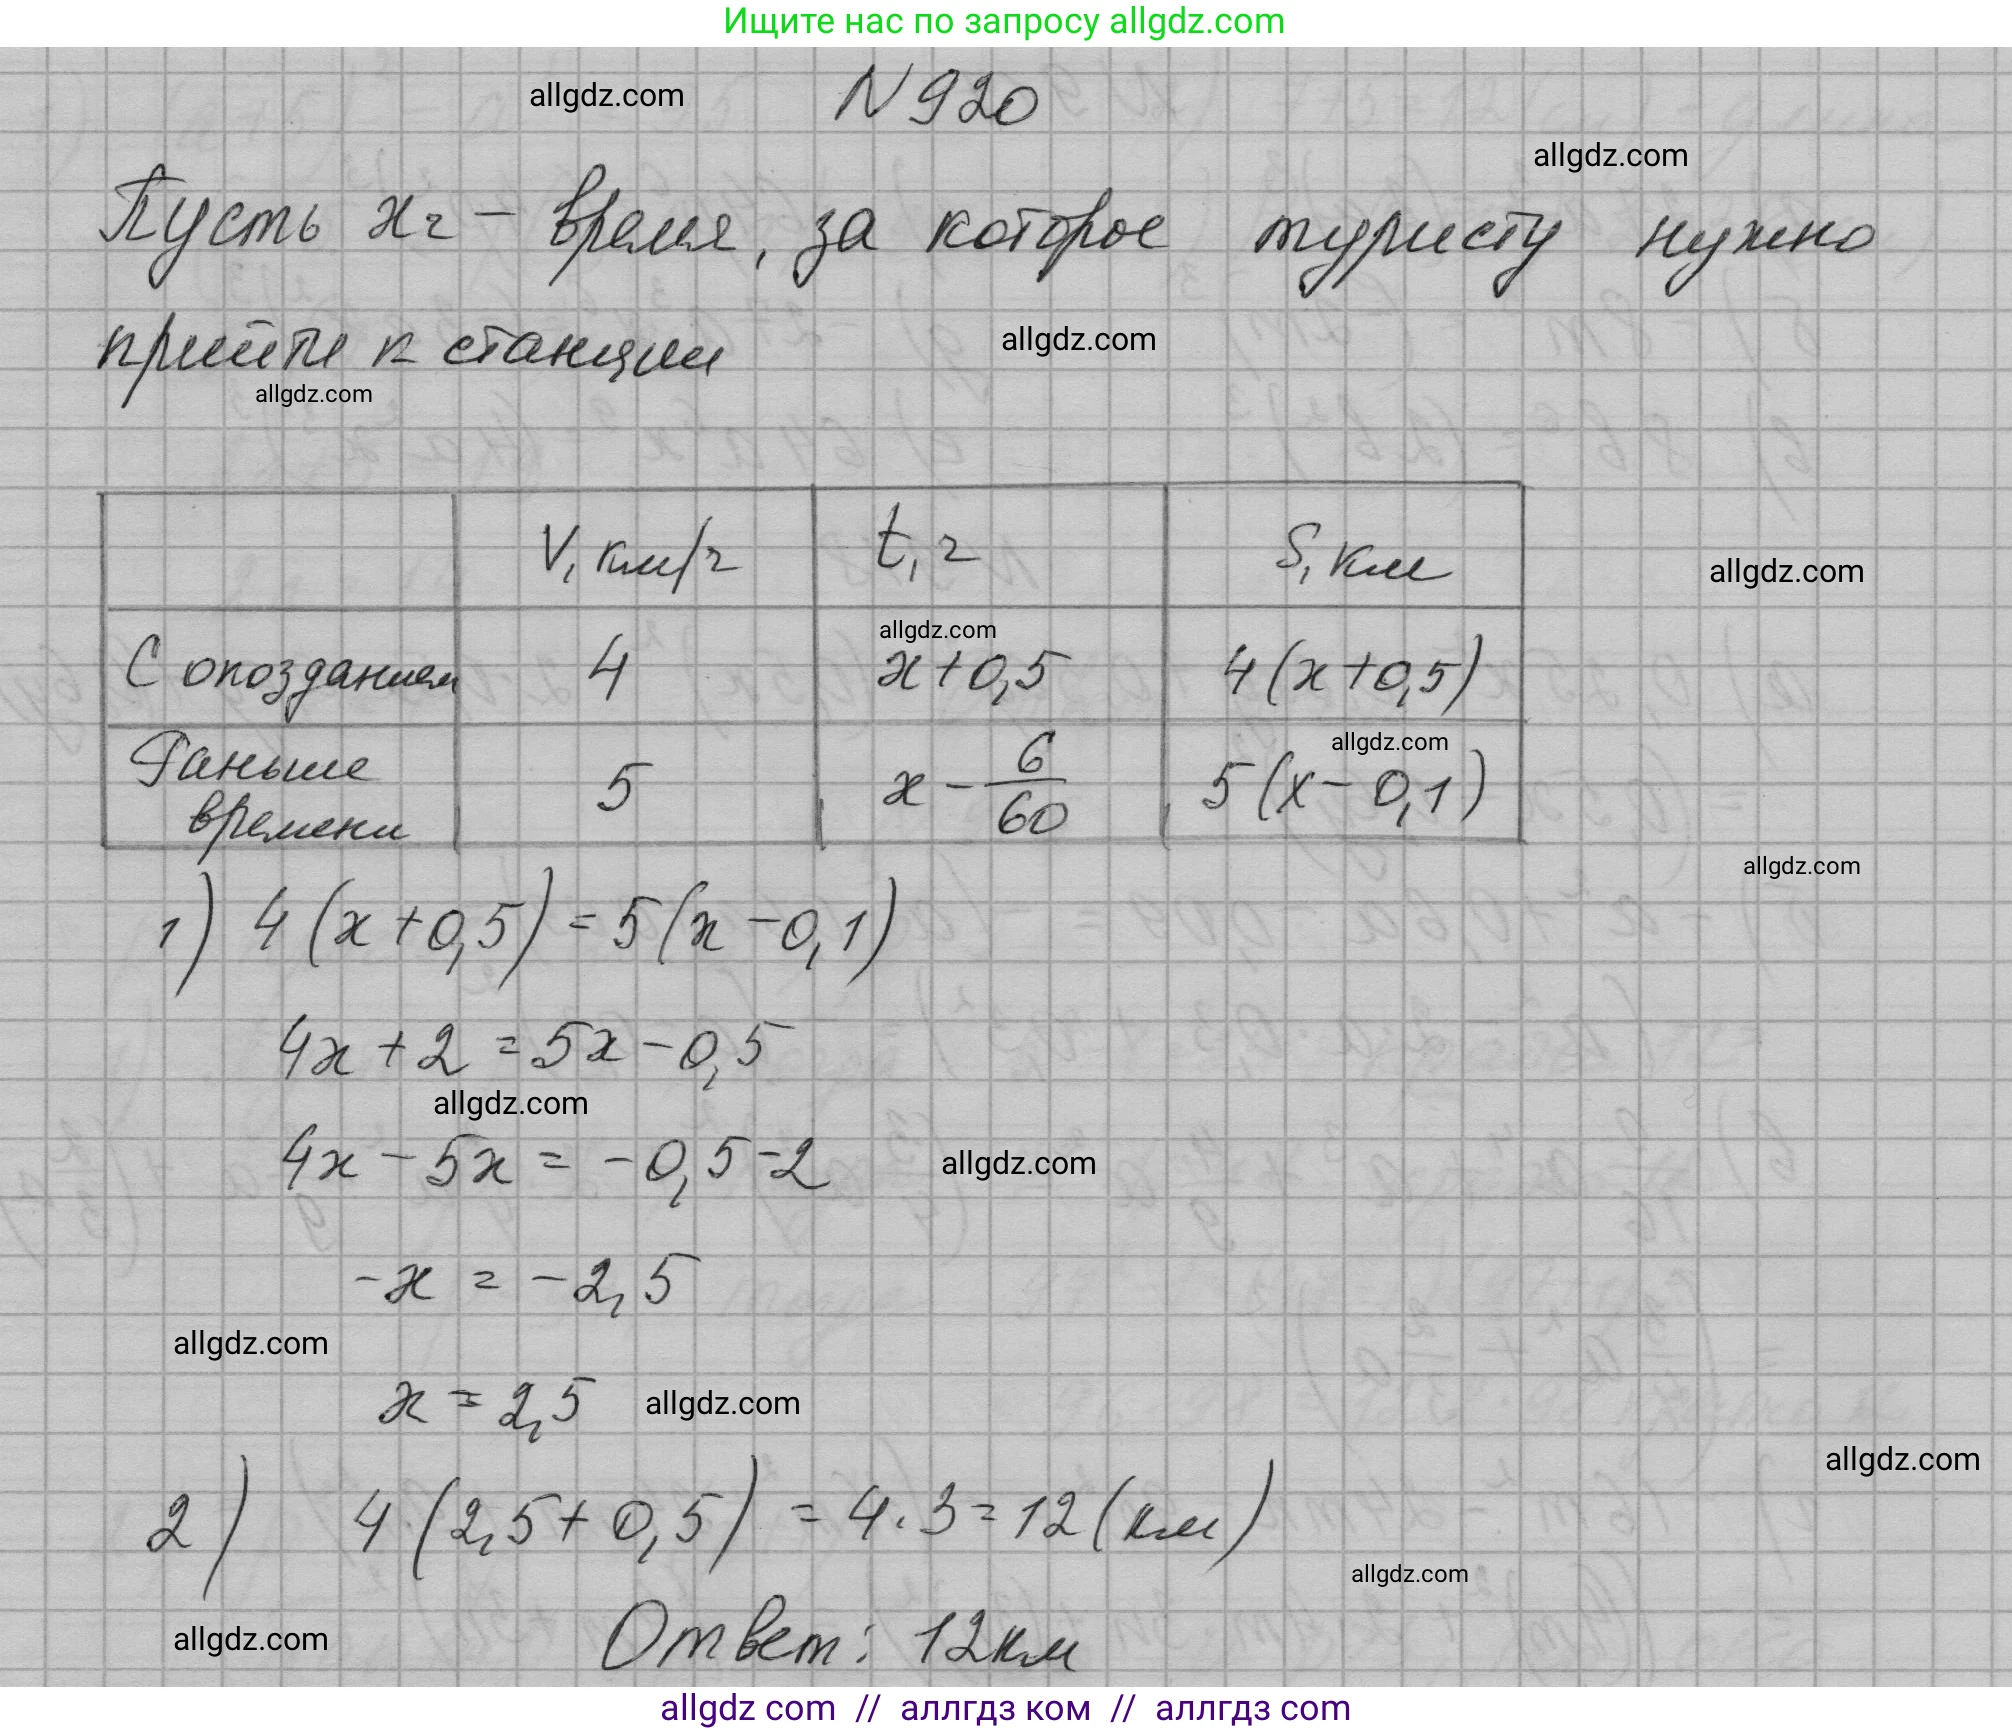 Ищите нас по запросу allgdz.com
allgdz.com
N 920
allgdz.com
Пусть xч – время, за которое туристу нужно
прийти к станции
allgdz.com
allgdz.com
V, км/ч t, ч S, км
allgdz.com
allgdz.com
С опозданием 4 x+0,5 4(x+0,5)
allgdz.com
Раньше времени 5 x - 6/60 5(x-0,1)
allgdz.com
1) 4(x+0,5)=5(x-0,1)
4x+2=5x-0,5
allgdz.com
4x-5x=-0,5-2
allgdz.com
-x=-2,5
allgdz.com
x=2,5
allgdz.com
allgdz.com
2) 4(2,5+0,5)=4·3=12(км)
allgdz.com
allgdz.com
Ответ: 12км
allgdz com // аллгдз ком // аллгдз com